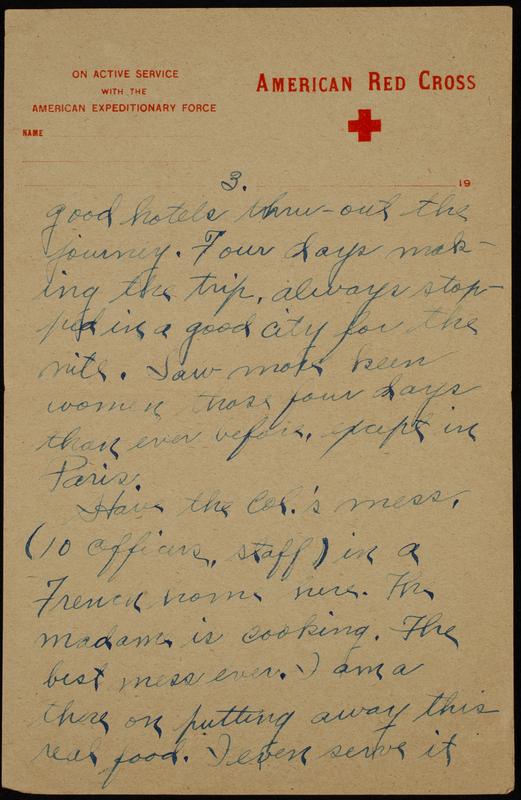 ON ACTIVE SERVICE
WITH THE
AMERICAN EXPEDITIONARY FORCE
AMERICAN RED CROSS
NAME
3.
19
good hotels thru-out the
journey. Four days mak-
ing the trip, always stop-
ped in a good city for the
nite. Saw more keen
women those four days
than ever before, xcept in
Paris.
Have the Col.'s mess,
(10 officers, staff) in a
French home here. The
madam is cooking. The
best mess ever. I am a
there on putting away this
real food. I even serve it